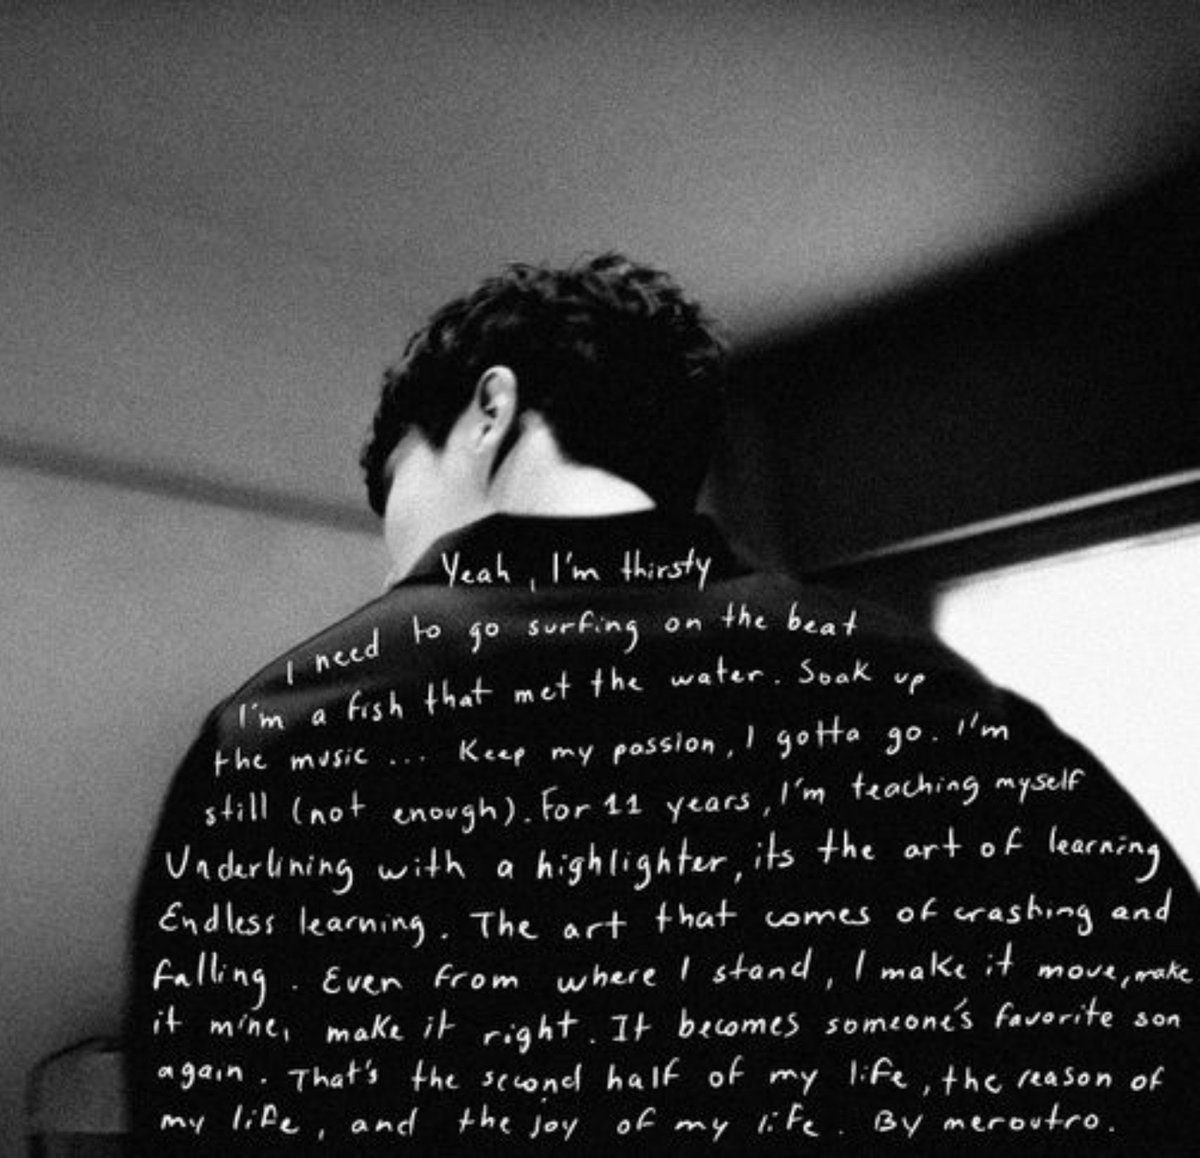 Yeah, I'm thirsty
I need to go surfing on the beat
I'm a fish that met the water. Soak up
the music ... Keep my passion, I gotta go. I'm
still (not enough). For 11 years, I'm teaching myself
Underlining with a highlighter, its the art of learning
Endless learning. The art that comes of crashing and
falling. Even from where I stand, I make it move, make
it mine, make it right. It becomes someone's favorite son
again. That's the second half of my life, the reason of
my life, and the joy of my life. By meroutro.